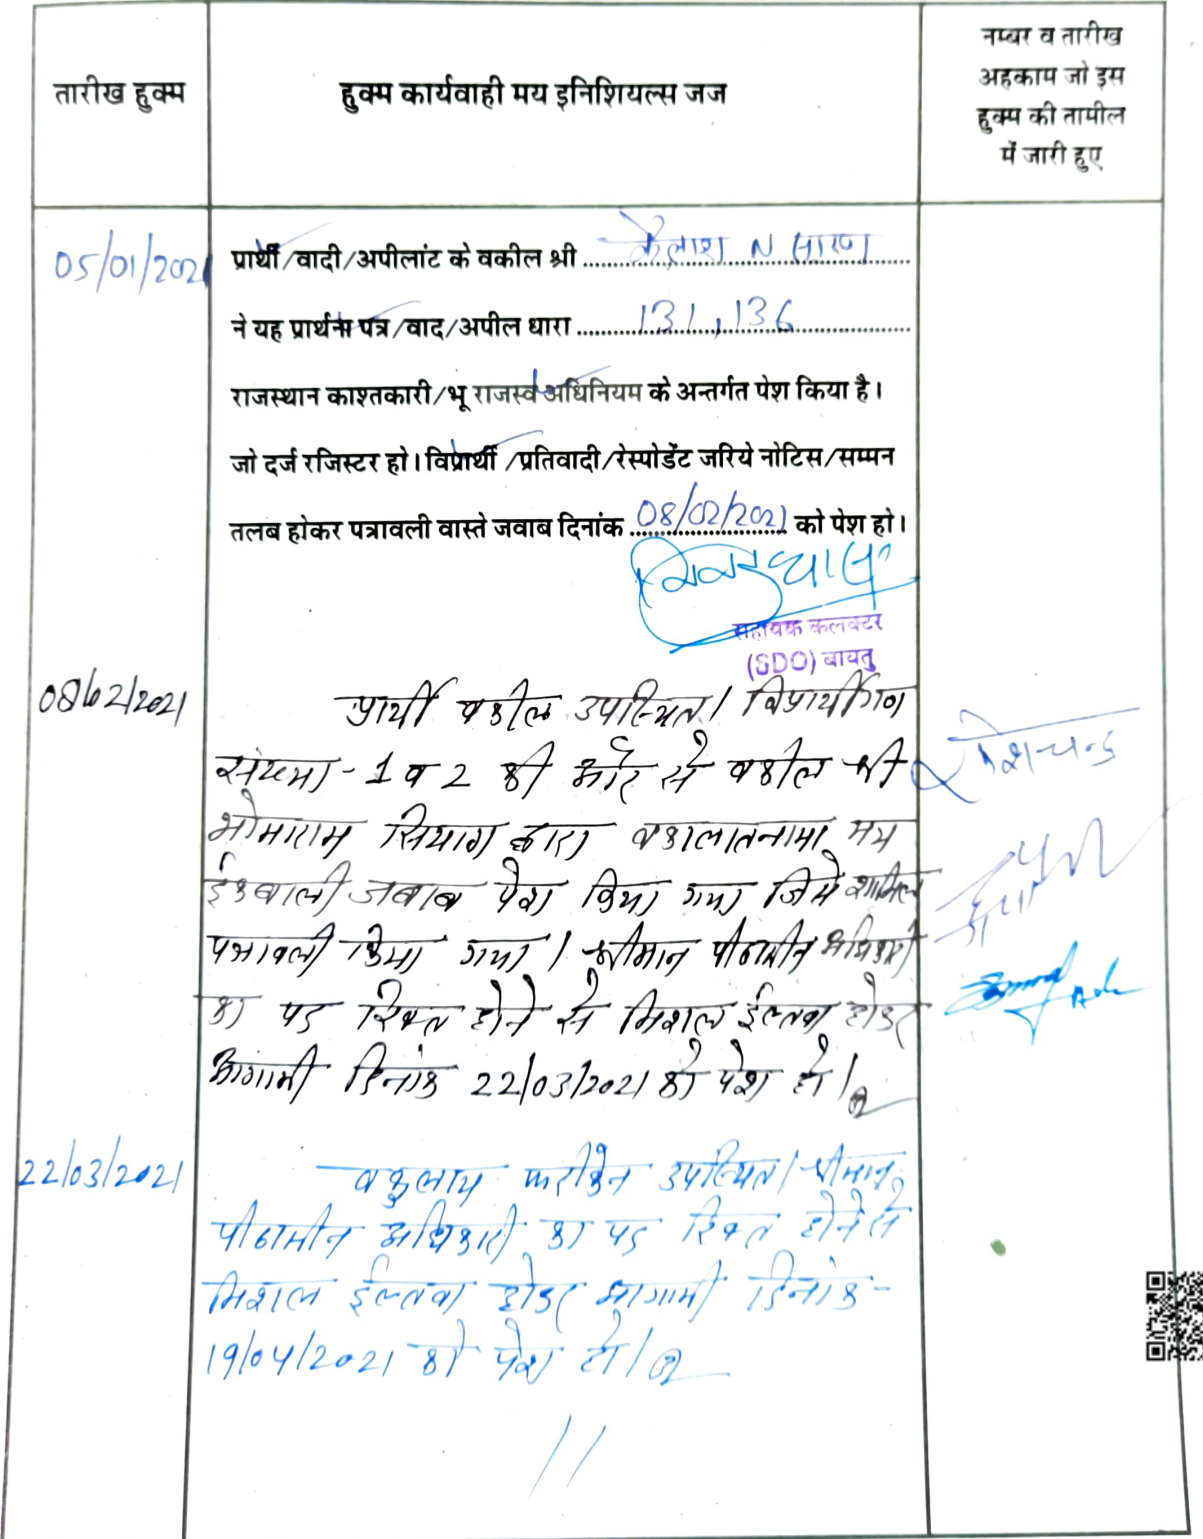 तारीख हुक्म
हुक्म कार्यवाही मय इनिशियल्स जज
नम्बर व तारीख
अहकाम जो इस
हुक्म की तामील
में जारी हुए
05/01/2021
प्रार्थी/वादी/अपीलांट के वकील श्री कैलाश N सारण
ने यह प्रार्थना पत्र/वाद/अपील धारा 131,136
राजस्थान काश्तकारी/भू राजस्व अधिनियम के अन्तर्गत पेश किया है।
जो दर्ज रजिस्टर हो। विप्रार्थी/प्रतिवादी/रेस्पोडेंट जरिये नोटिस/सम्मन
तलब होकर पत्रावली वास्ते जवाब दिनांक 08/02/2021 को पेश हो।
सहायक कलक्टर
(SDO) बायतु
08/02/2021
प्रार्थी वकील उपस्थित। विप्रार्थीगण
संख्या-1 व 2 की ओर से वकील श्री
भोमाराम सियाग द्वारा वकालातनामा मय
ईकबाली जवाब पेश किया गया जिसे शामिल
पत्रावली किया गया। श्रीमान पीठासीन अधिकारी
का पद रिक्त होने से मिशल ईल्तवा होकर
आगामी दिनांक 22/03/2021 को पेश हो।
22/03/2021
वकुलाय फरीकेन उपस्थित। श्रीमान
पीठासीन अधिकारी का पद रिक्त होने से
मिशल ईल्तवा होकर आगामी दिनांक-
19/04/2021 को पेश हो।